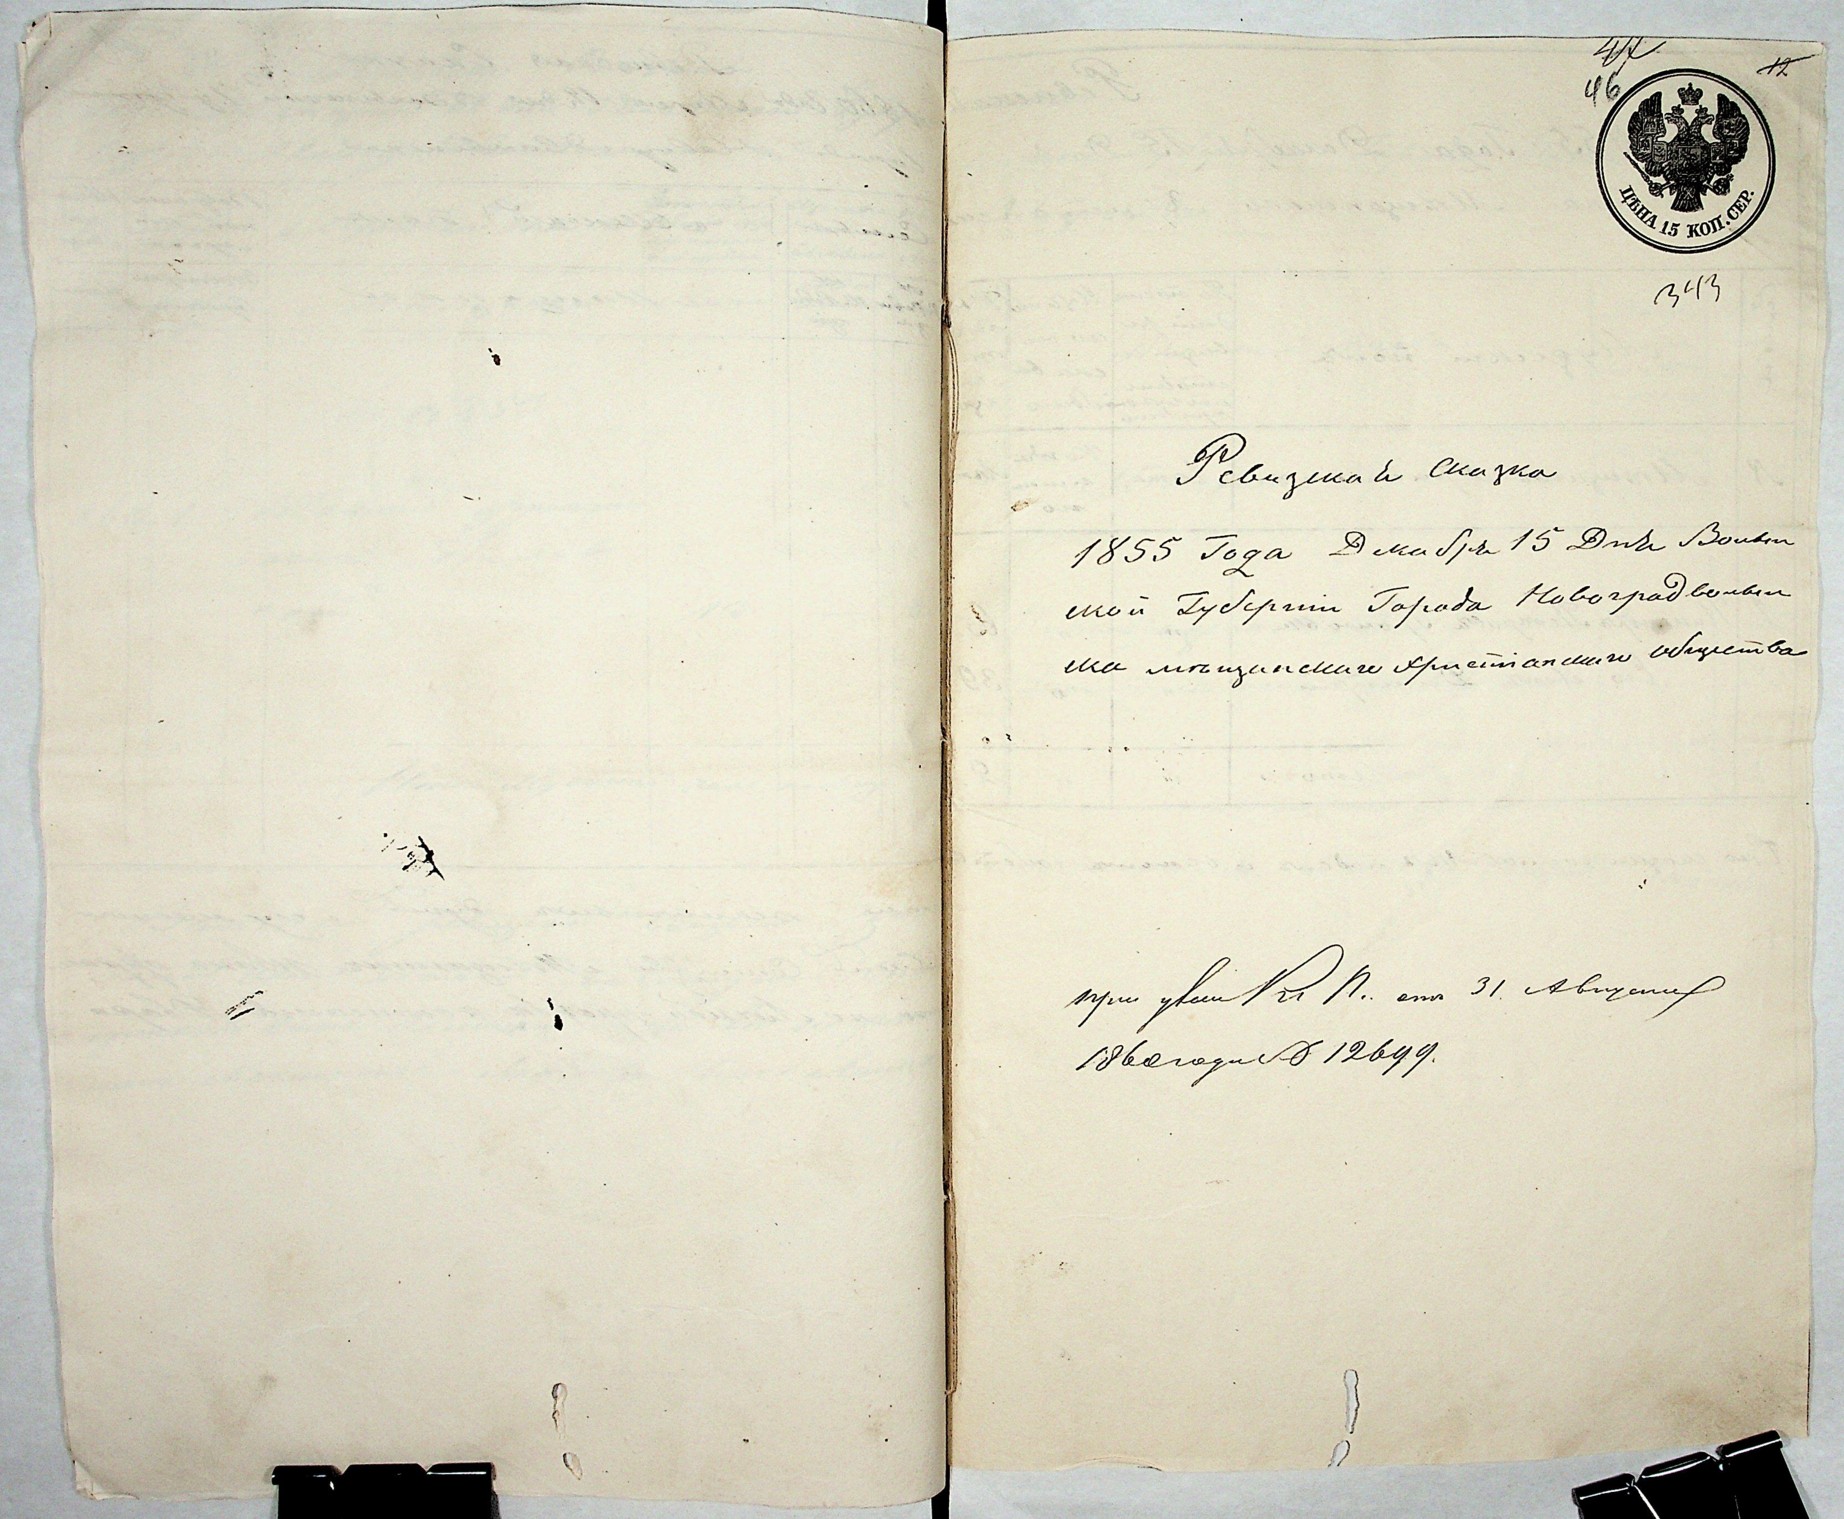 47
46
12
ЦѢНА 15 КОП. СЕР.
343
Ревизская Сказка
1855 Года Декабря 15 Дня Волын
ской Губернии Города Новоградволын
ска мѣщанскаго христіанскаго общества
при от 31 Августа
1860 года № 12699.